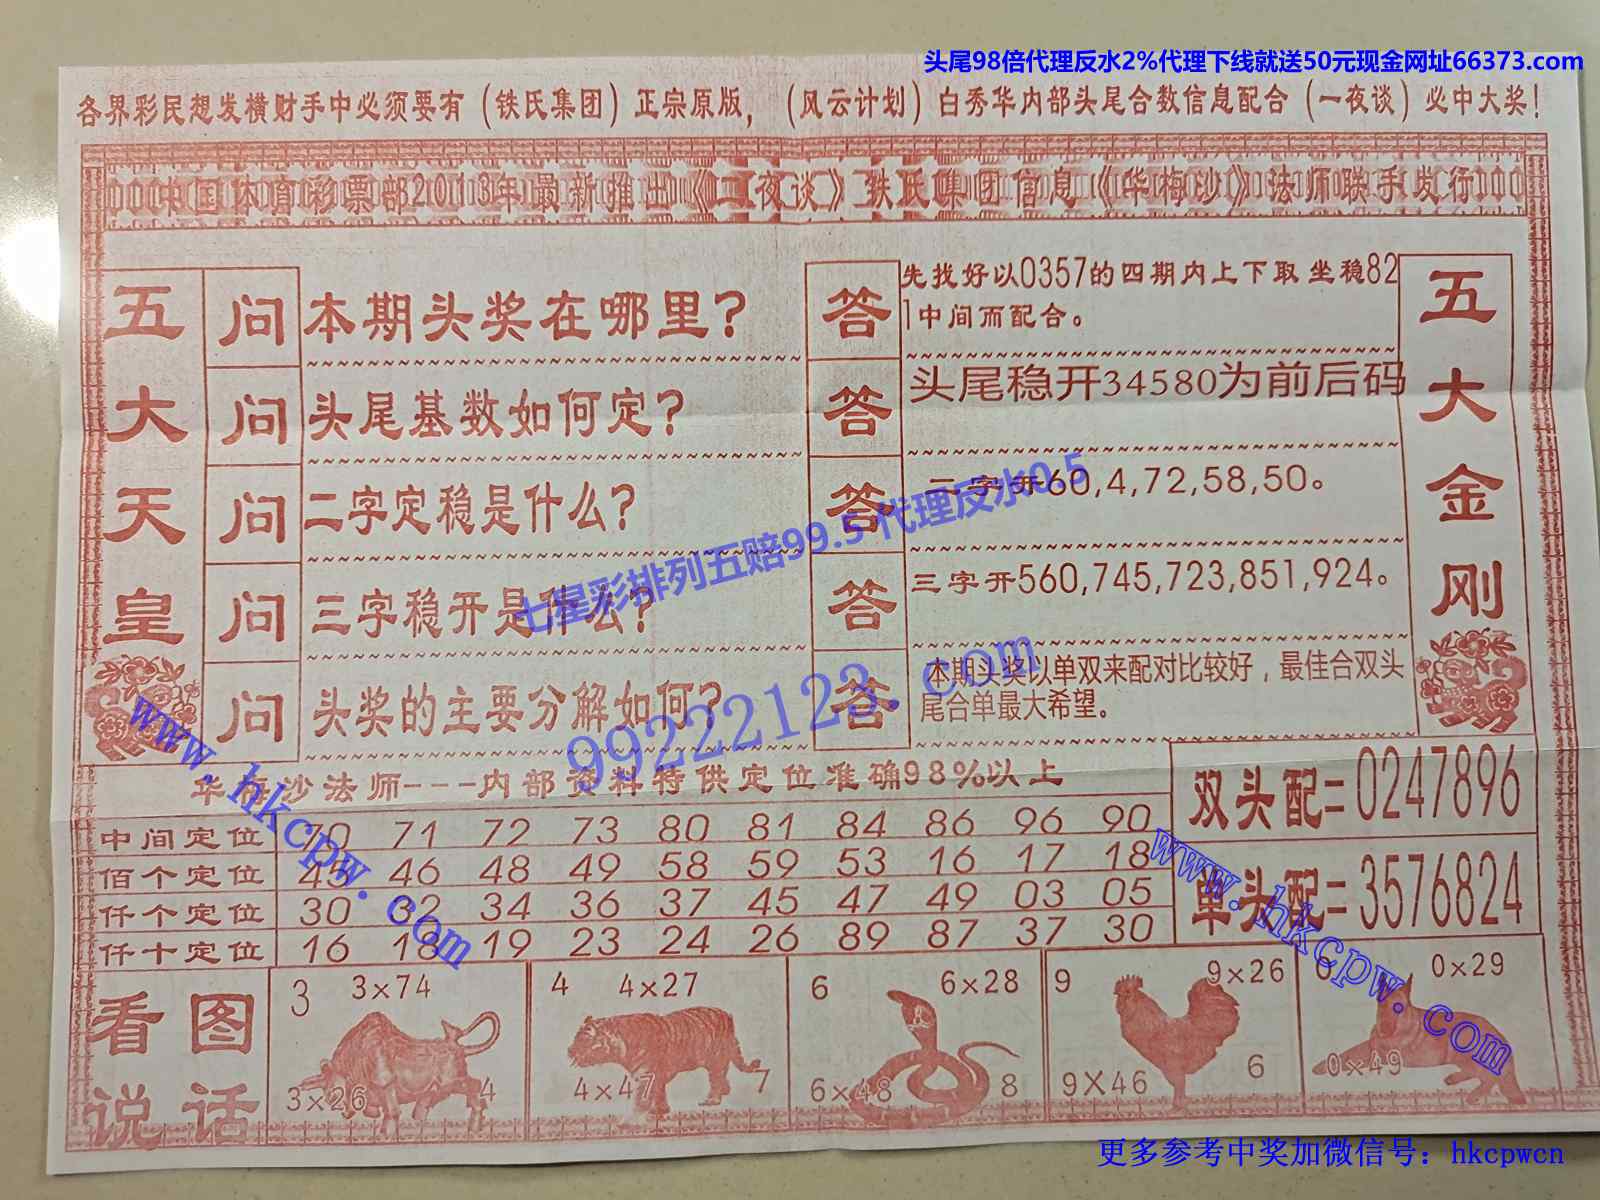 头尾98倍代理反水2%代理下线就送50元现金网址66373.com
各界彩民想发横财手中必须要有（铁氏集团）正宗原版，（风云计划）白秀华内部头尾合数信息配合（一夜谈）必中大奖！
中国体育彩票部2013年最新推出《二夜谈》铁氏集团信息《华梅沙》法师联手发行
五大天皇
问 本期头奖在哪里？
答 先找好以0357的四期内上下取坐稳82
1中间而配合。
问 头尾基数如何定？
答 头尾稳开34580为前后码
问 二字定稳是什么？
答 二字开60,4,72,58,50。
问 三字稳开是什么？
答 三字开560,745,723,851,924。
问 头奖的主要分解如何？
答 本期头奖以单双来配对比较好，最佳合双头
尾合单最大希望。
五大金刚
七星彩排列五赔99.5 代理反水0.5
99222123.com
www.hkcpw.com
华梅沙法师---内部资料特供定位准确98%以上
中间定位 70 71 72 73 80 81 84 86 96 90
佰个定位 45 46 48 49 58 59 53 16 17 18
仟个定位 30 32 34 36 37 45 47 49 03 05
仟十定位 16 18 19 23 24 26 89 87 37 30
双头配=0247896
单头配=3576824
www.hkcpw.com
看图
说话
3 3×74
3×26 4
4 4×27
4×47 7
6 6×28
6×48 8
9 9×26
9×46 6
0×29
0×49
更多参考中奖加微信号：hkcpwcn